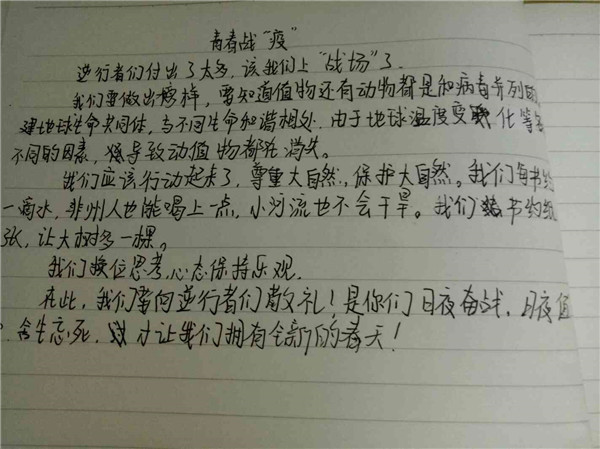 青春战"疫"
逆行者们付出了太多,该我们上"战场"了.
我们要做出榜样,要知道值物还有动物都是和病毒并列
建地球生命共同体,与不同生命和谐相处.由于地球温度变化等
不同的因素,将导致动值物都在消失。
我们应该行动起来了,尊重大自然,保护大自然。我们每节约
一滴水,非州人也能喝上一点,小河流也不会干旱。我们节约
张,让大树多一棵。
我们换位思考,心态保持乐观.
在此,我们要向逆行者们敬礼!是你们日夜奋战,日夜值
舍生忘死,才让我们拥有全新的春天!